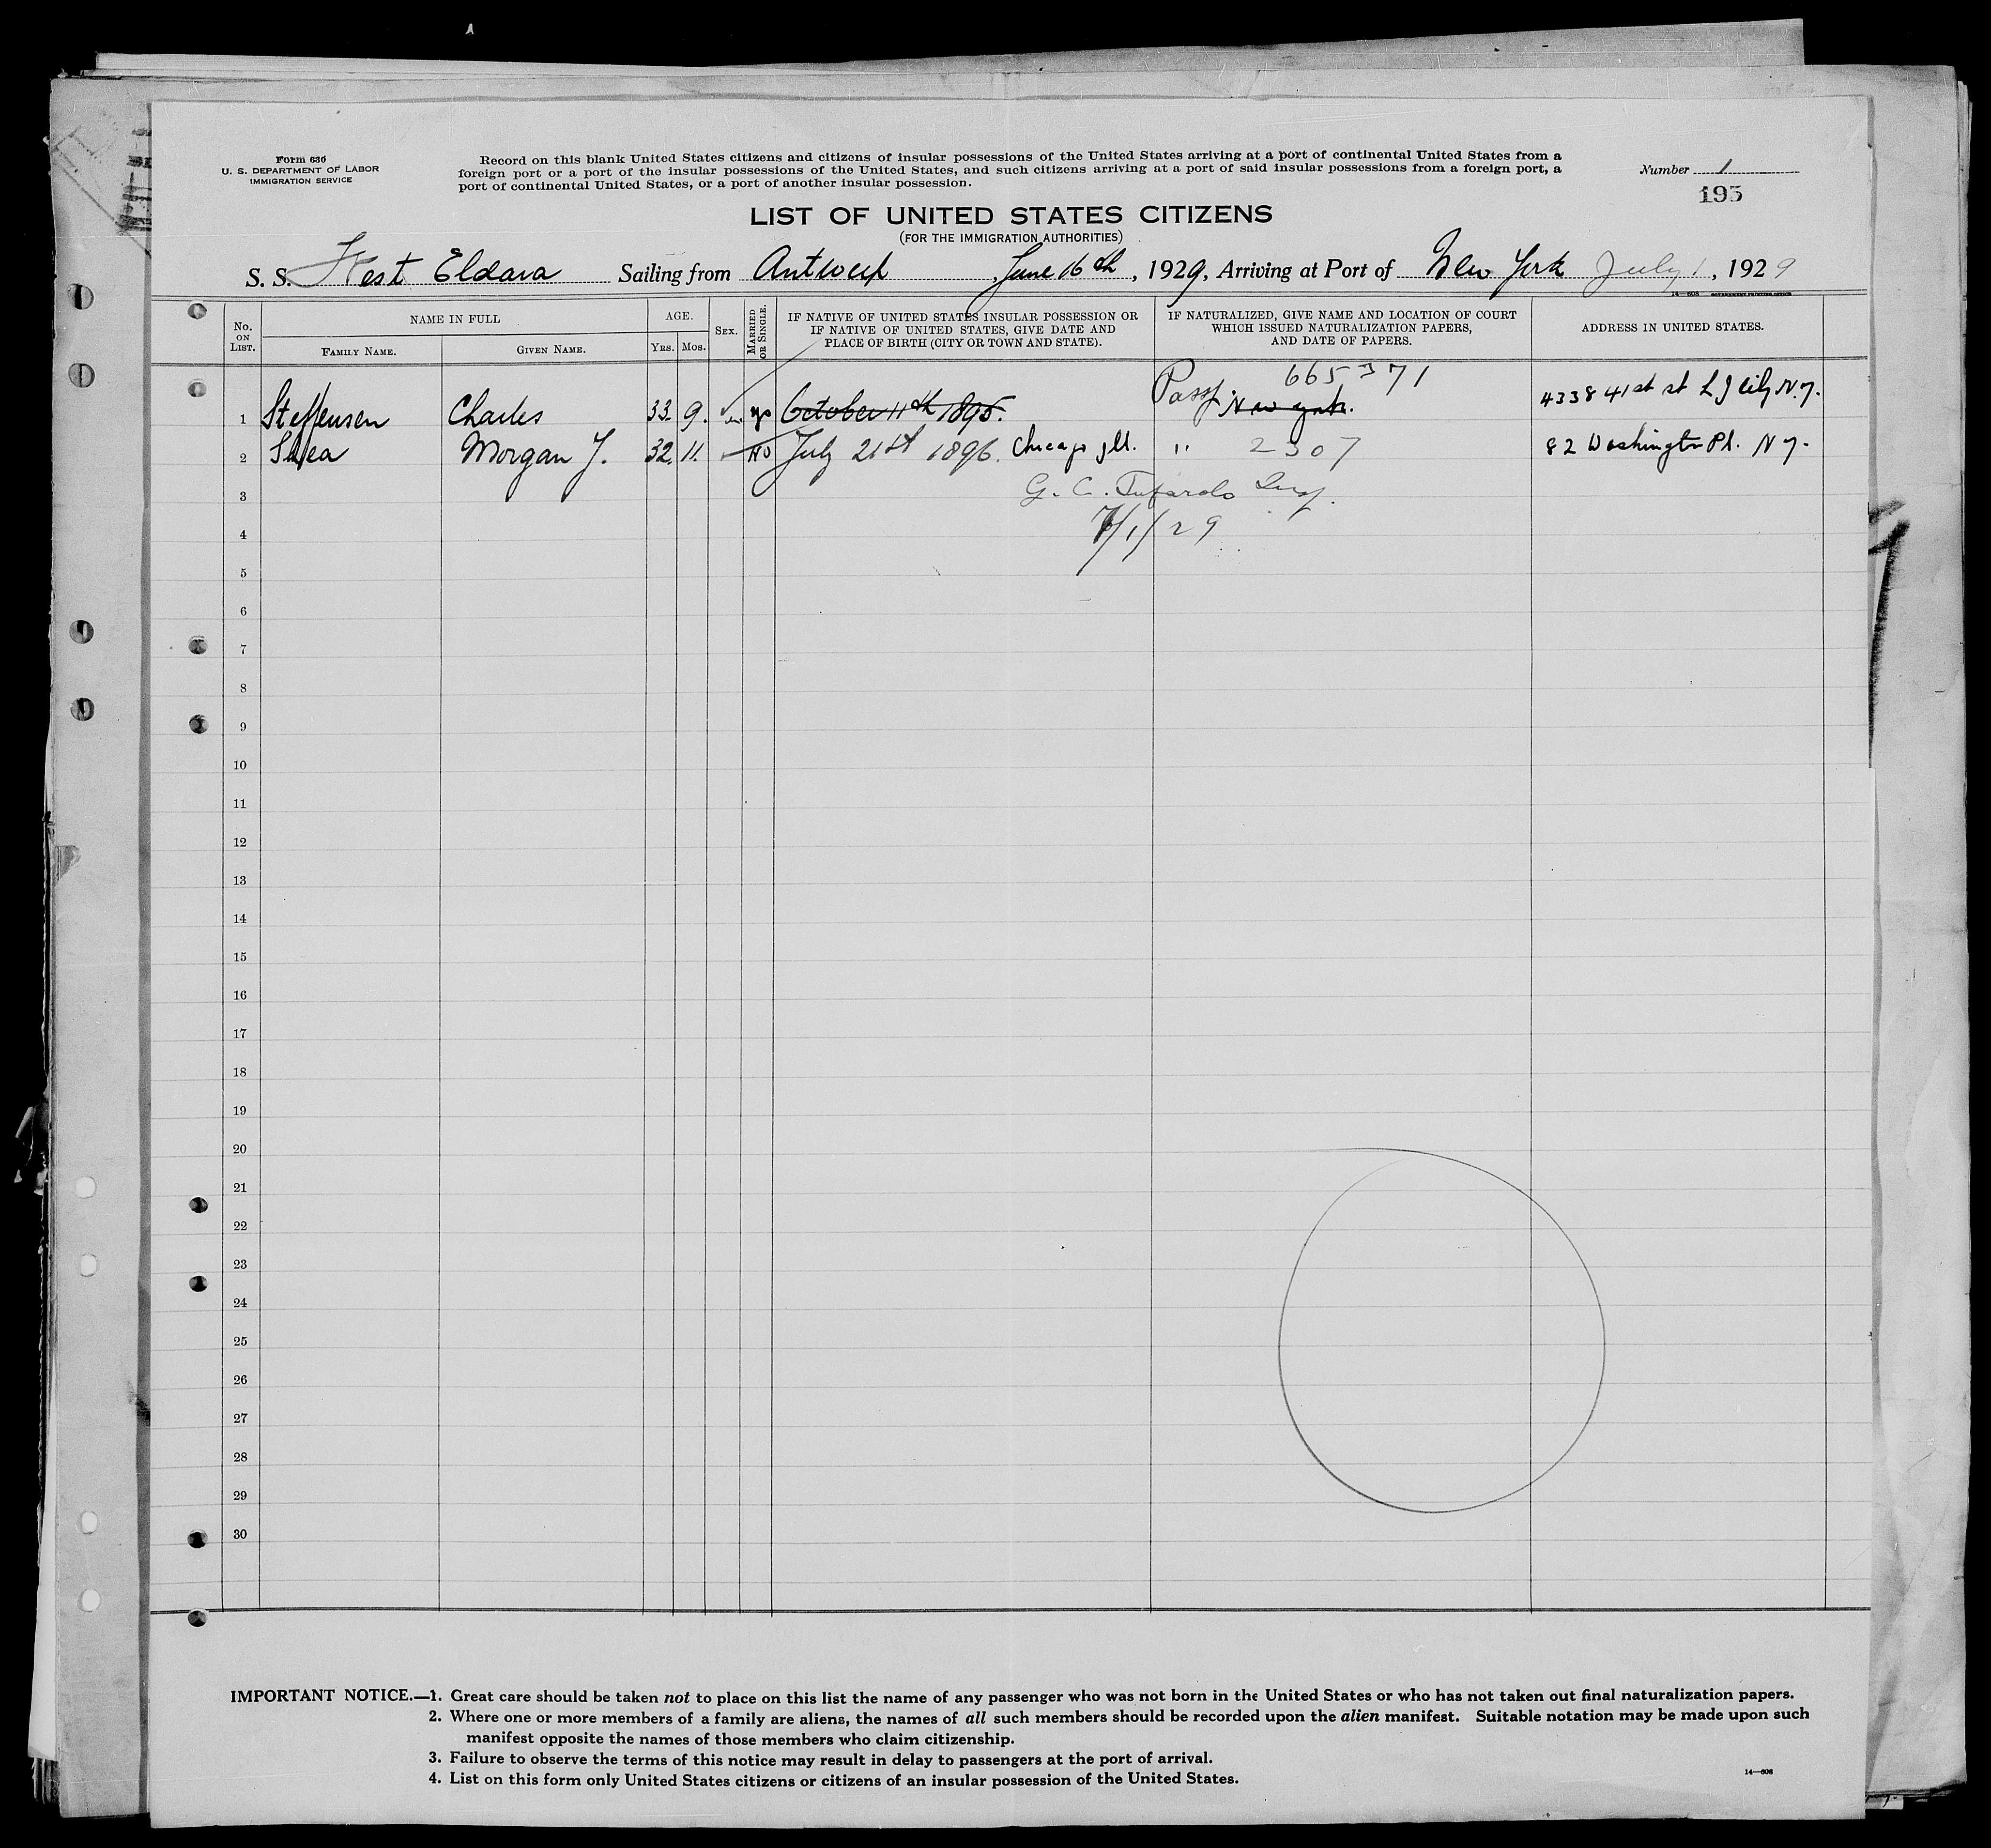 Form 630
U. S. DEPARTMENT OF LABOR
IMMIGRATION SERVICE
Record on this blank United States citizens and citizens of insular possessions of the United States arriving at a port of continental United States from a
foreign port or a port of the insular possessions of the United States, and such citizens arriving at a port of said insular possessions from a foreign port, a
port of continental United States, or a port of another insular possession.
Number 1
195
LIST OF UNITED STATES CITIZENS
(FOR THE IMMIGRATION AUTHORITIES)
S. S. West Eldara Sailing from Antwerp June 16th, 1929, Arriving at Port of New York July 1, 1929
14—608 GOVERNMENT PRINTING OFFICE
No. ON LIST.
NAME IN FULL
FAMILY NAME.
GIVEN NAME.
AGE.
YRS. MOS.
SEX.
MARRIED OR SINGLE.
IF NATIVE OF UNITED STATES INSULAR POSSESSION OR
IF NATIVE OF UNITED STATES, GIVE DATE AND
PLACE OF BIRTH (CITY OR TOWN AND STATE).
IF NATURALIZED, GIVE NAME AND LOCATION OF COURT
WHICH ISSUED NATURALIZATION PAPERS,
AND DATE OF PAPERS.
ADDRESS IN UNITED STATES.
1 Steffensen Charles 33. 9. m ys October 11th 1895. Passp. 665371 New york. 4338 41st st L J City N.Y.
2 Shea Morgan J. 32. 11. no July 21st 1896. Chicago Ill. " 2307 82 Washington Pl. N Y.
3 G. C. Tufarolo Insp.
4 7/1/29
5
6
7
8
9
10
11
12
13
14
15
16
17
18
19
20
21
22
23
24
25
26
27
28
29
30
IMPORTANT NOTICE.—1. Great care should be taken not to place on this list the name of any passenger who was not born in the United States or who has not taken out final naturalization papers.
2. Where one or more members of a family are aliens, the names of all such members should be recorded upon the alien manifest. Suitable notation may be made upon such
manifest opposite the names of those members who claim citizenship.
3. Failure to observe the terms of this notice may result in delay to passengers at the port of arrival.
4. List on this form only United States citizens or citizens of an insular possession of the United States.
14—608